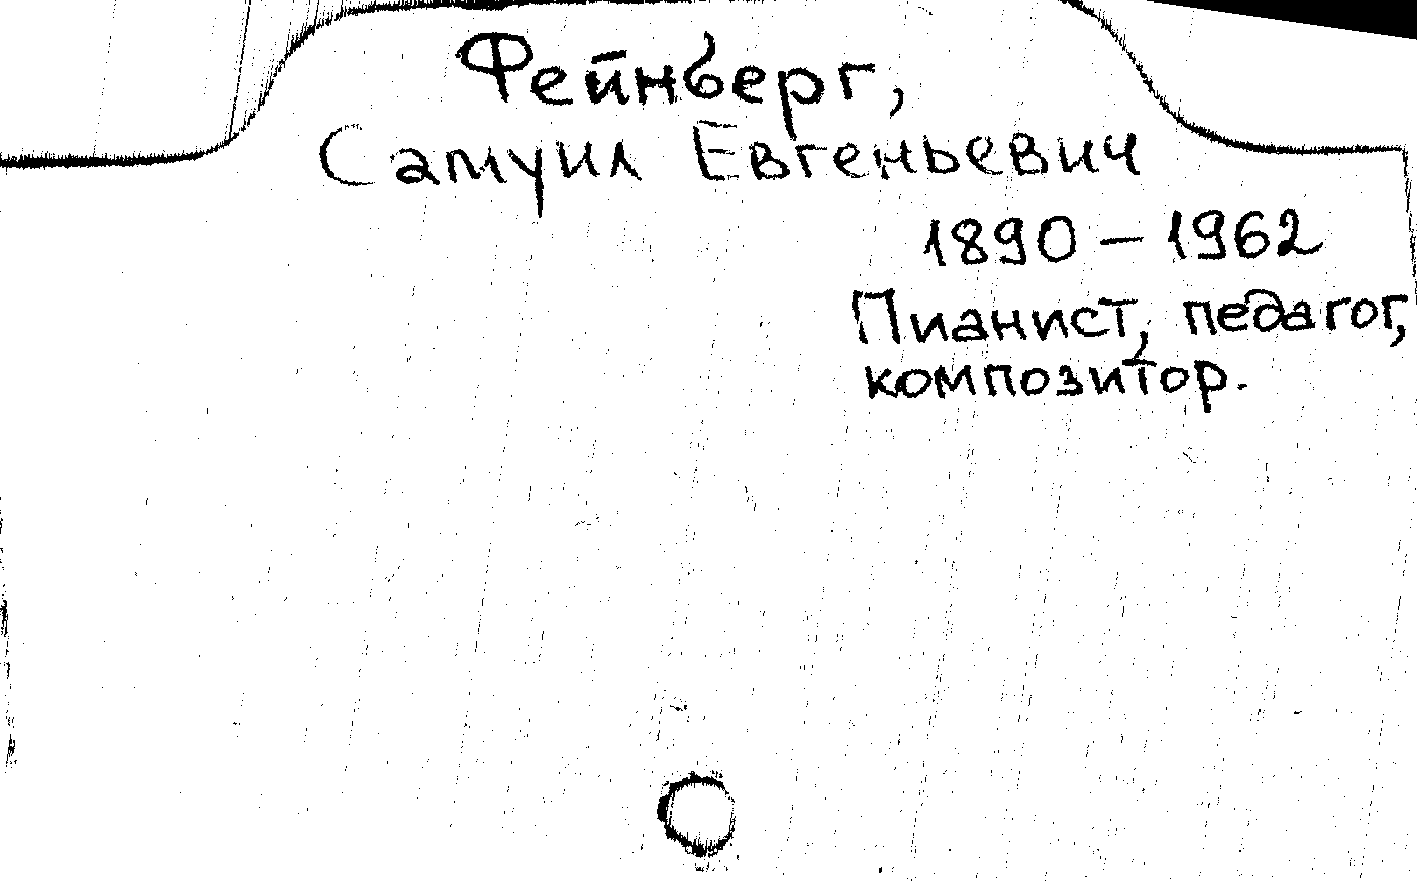 Фейнберг,
Самуил Евгеньевич
1890 – 1962
Пианист, педагог,
композитор.